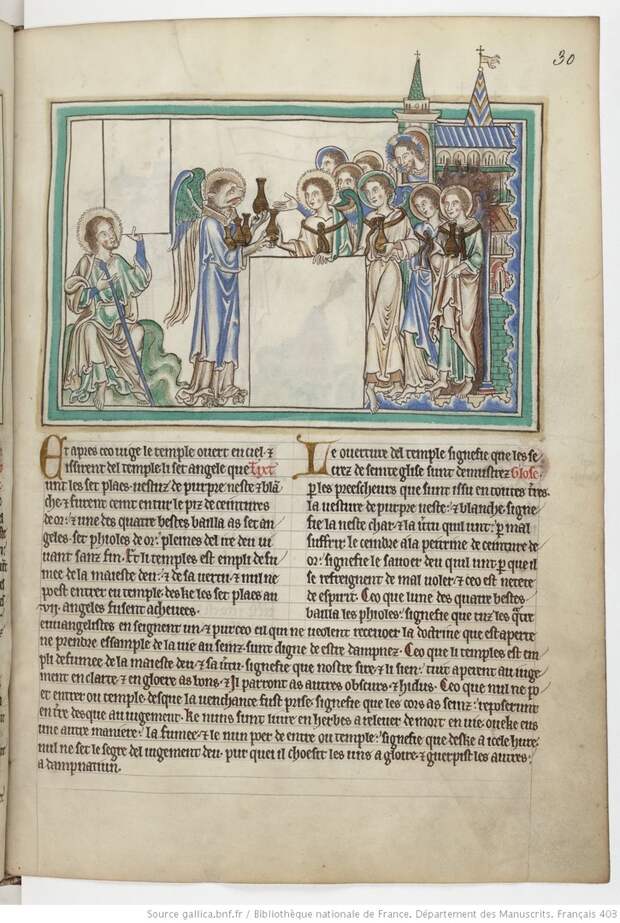 30
Et apres ceo vi ge le temple overt en ciel. &
issirent del temple li set angele que Tixt
unt les set plaies. vestuz de purpre neste & blā
che. & furent ceint entur le piz de ceintures
de or. & une des quatre bestes bailla as set an
geles. set phioles de or. pleines del ire deu vi
vant sanz fin. Et li temples est empli de fu
mee de la maieste deu. & de sa vertu. & nul ne
poet entrer eu temple. deske les set plaies au
vij. angeles fusent achevees.
Le overture del temple signefie que les se
crez de seinte eglise sunt demustrez Glose.
per les preescheurs que sunt issu en tontes tres.
la vesture de purpre neste. & blanche. signe
fie la neste char. & la vertu qui unt. per mal
suffrir. le ceindre a la peitrine de ceinture de
or. signefie le savoer deu qui unt. per que il
se refreignent de mal voler. & ceo est netete
de espirit. Ceo que lune des quatre bestes
bailla les phioles. signefie que tuz les quatre
euvangelistes en seignent un. & pur ceo cil qui ne veolent recevoer la doctrine que est aperte
ne prendre essample de la vie au seinz. sunt digne de estre dampnez. Ceo que li temples est em
pli de fumee de la maieste deu. & sa vertu. signefie que nostre sire. & li sien. tuit aperent au iuge
ment en clarte. & en gloere as bons. & Il parront as autres obscurs. & hidus. Ceo que nul ne po
et entrer ou temple. desque la venchance fust prise. signefie que les cors as seinz. reposerunt
en tre desque au iugement. Ke nuns sunt en herbes a relever de mort en vie. oveke eus
une autre maniere. la fumee. & le nun poer de entre ou temple. signefie que deske a icele hure.
nul ne set le segre del iugement deu. pur quei il choesit les uns a gloire. & guerpist les autres.
a dampnatiun.
Source gallica.bnf.fr / Bibliothèque nationale de France. Département des Manuscrits. Français 403